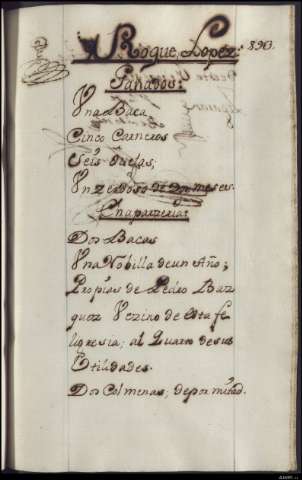 Roque Lopez 890.
Ganados:
Vna Baca
Cinco Carneros
Seis Ouejas,
Vn Zerdo de Dos meses.
En aparzeria
Dos Bacas
Vna Nobilla de un Año;
Propias de Pedro Baz
quez Vezino de esta fe
ligresia; al Quarto de sus
Vtilidades.
Dos Colmenas, de por mitad.